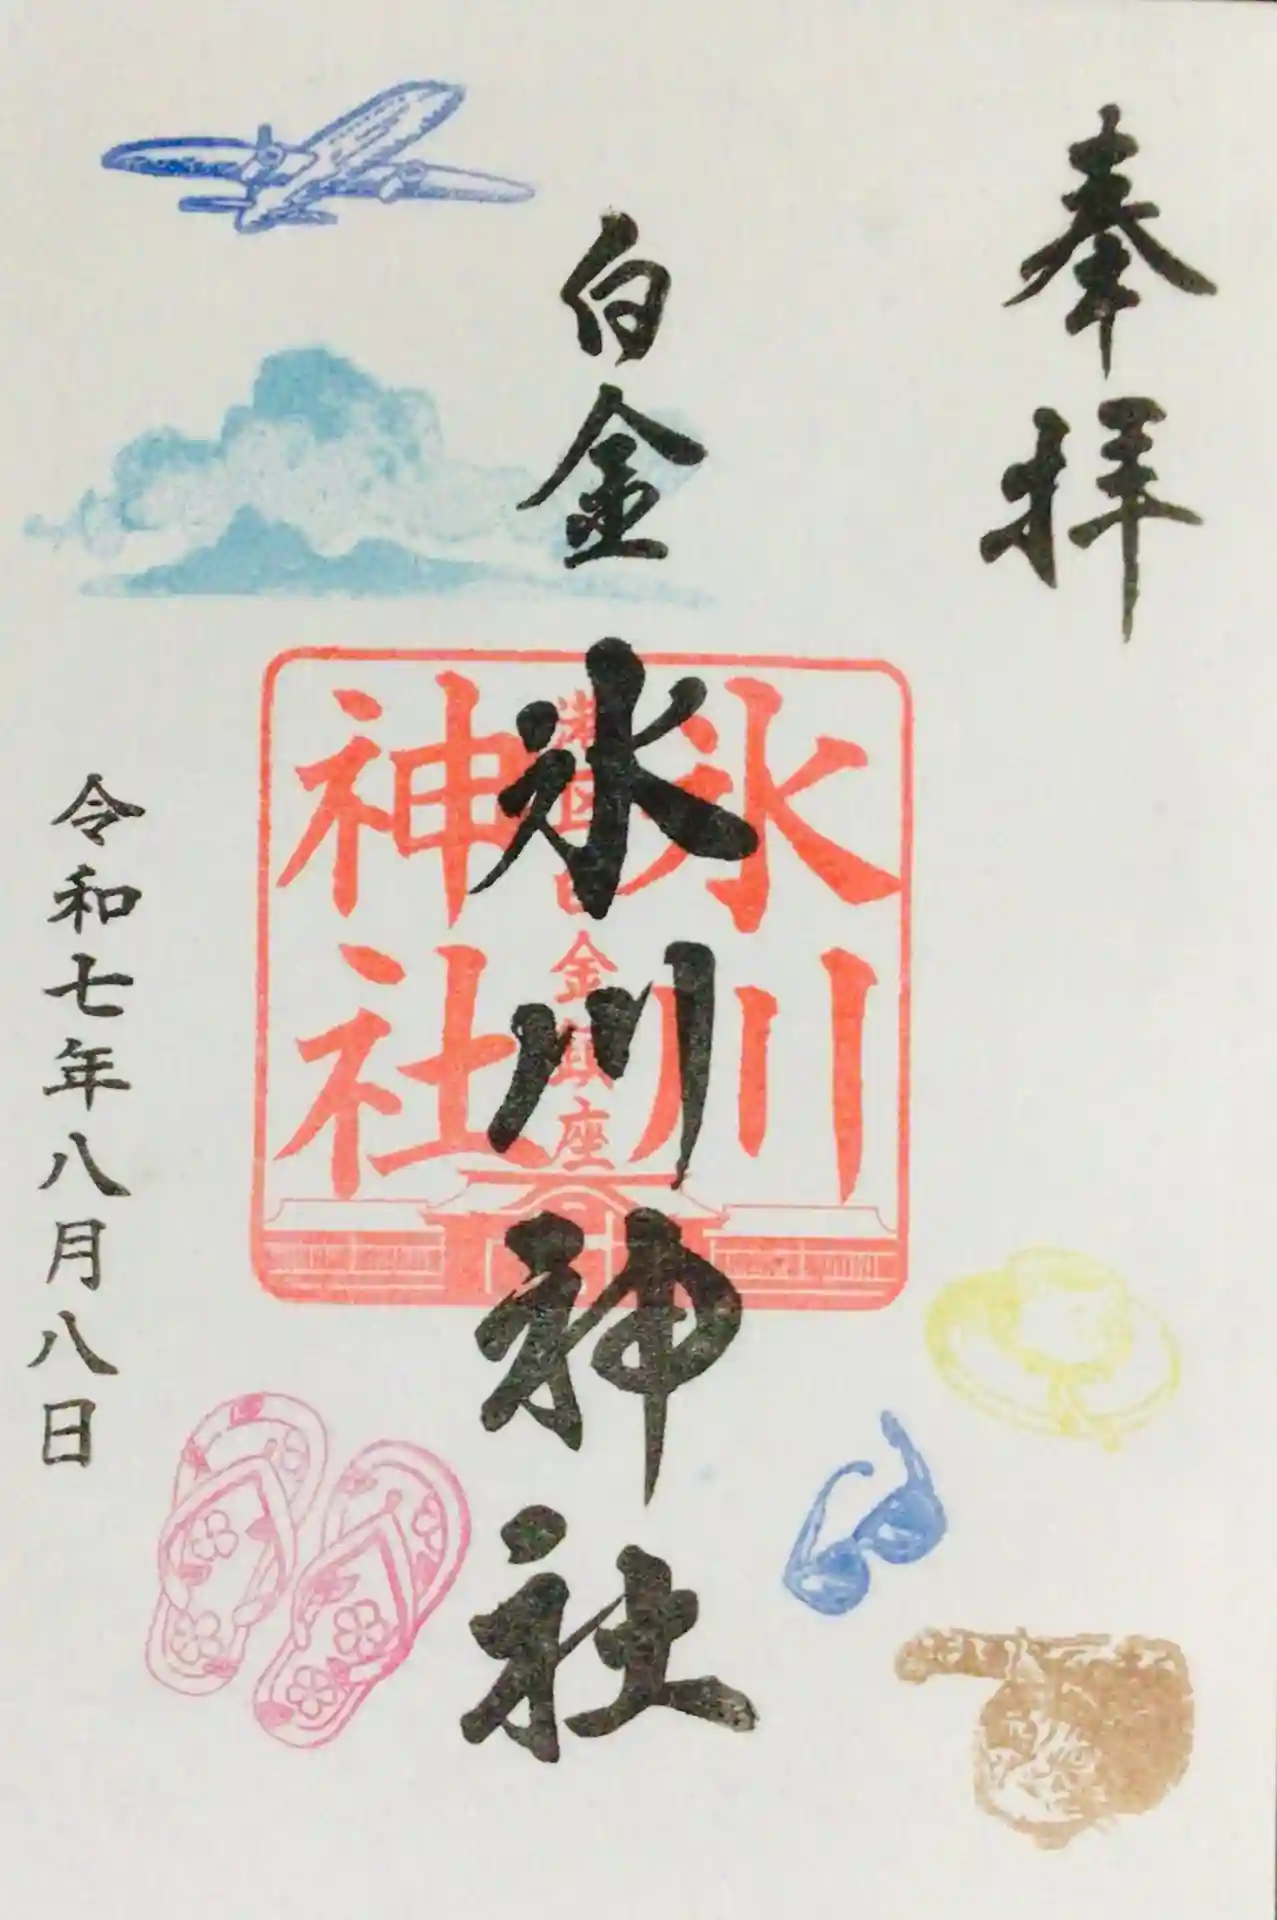 奉拝
白金 氷川神社
氷川
港区白金鎮座
神社
令和七年八月八日